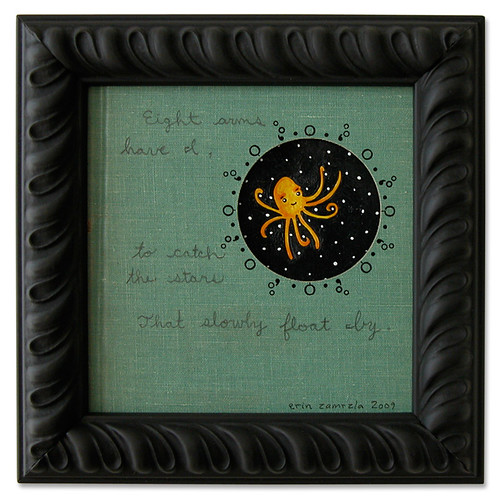 Eight arms
have I,
to catch
the stars
That slowly float by.
erin zamrzla 2009